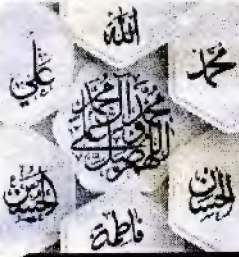 الله
محمد
علي
اللهم صل على محمد وآل محمد
الحسن
الحسين
فاطمة